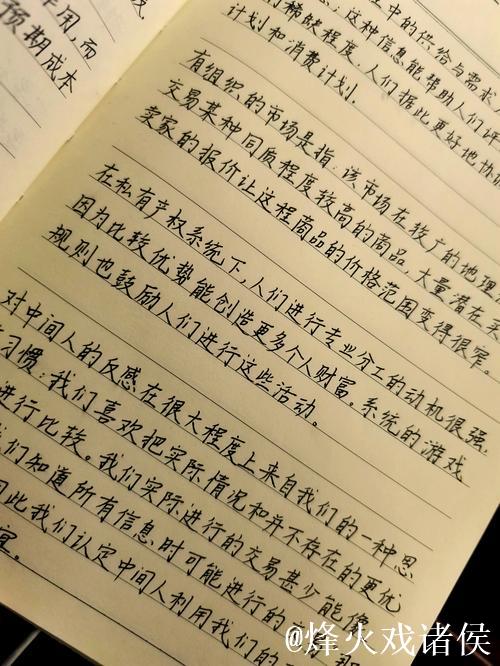 作用，而
预期成本
中的供给与需求
；这种信息能帮助人们评
的稀缺程度，人们据此更好地协
计划和消费计划。
有组织的市场是指：该市场在较广的地理
交易某种同质程度较高的商品，大量潜在买
卖家的报价让这程商品的价格范围变得很窄。
在私有产权系统下，人们进行专业分工的动机很强，
因为比较优势能创造更多个人财富。系统的游戏
规则也鼓励人们进行这些活动。
对中间人的反感在很大程度上来自我们的一种思
习惯：我们喜欢把实际情况和并不存在的更优
进行比较。我们实际进行的交易甚少能像
们知道所有信息时可能进行的
因此我们认定中间人利用我们的
@烽火戏诸侯